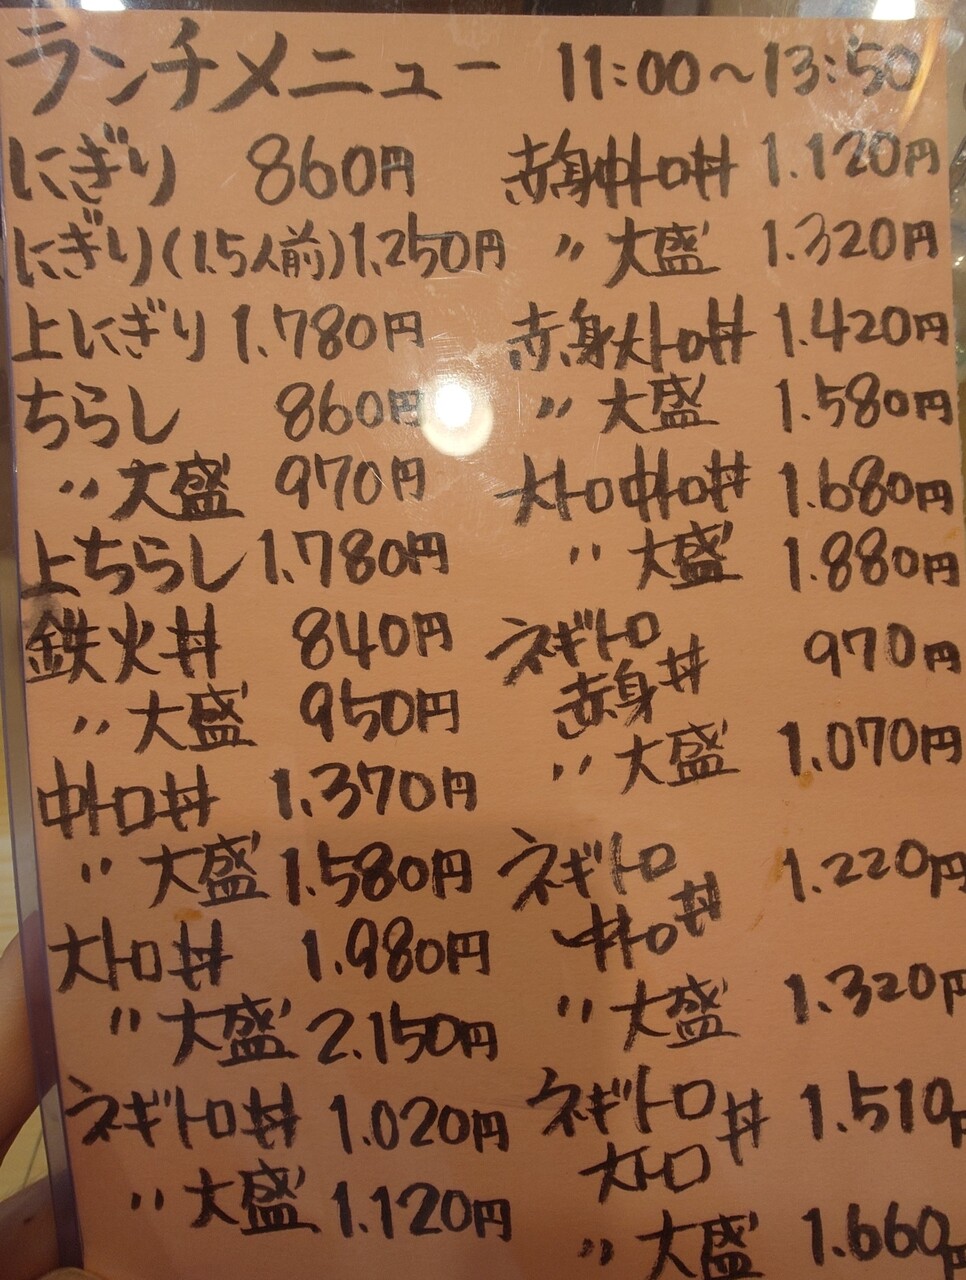 ランチメニュー 11:00〜13:50
にぎり 860円
にぎり(1.5人前)1.250円
上にぎり 1.780円
ちらし 860円
〃大盛 970円
上ちらし 1.780円
鉄火丼 840円
〃大盛 950円
中トロ丼 1.370円
〃大盛 1.580円
大トロ丼 1.980円
〃大盛 2.150円
ネギトロ丼 1.020円
〃大盛 1.120円
赤身中トロ丼 1.120円
〃大盛 1.320円
赤身大トロ丼 1.420円
〃大盛 1.580円
大トロ中トロ丼 1.680円
〃大盛 1.880円
ネギトロ
赤身丼 970円
〃大盛 1.070円
ネギトロ
中トロ丼 1.220円
〃大盛 1.320円
ネギトロ
大トロ丼 1.510円
〃大盛 1.660円